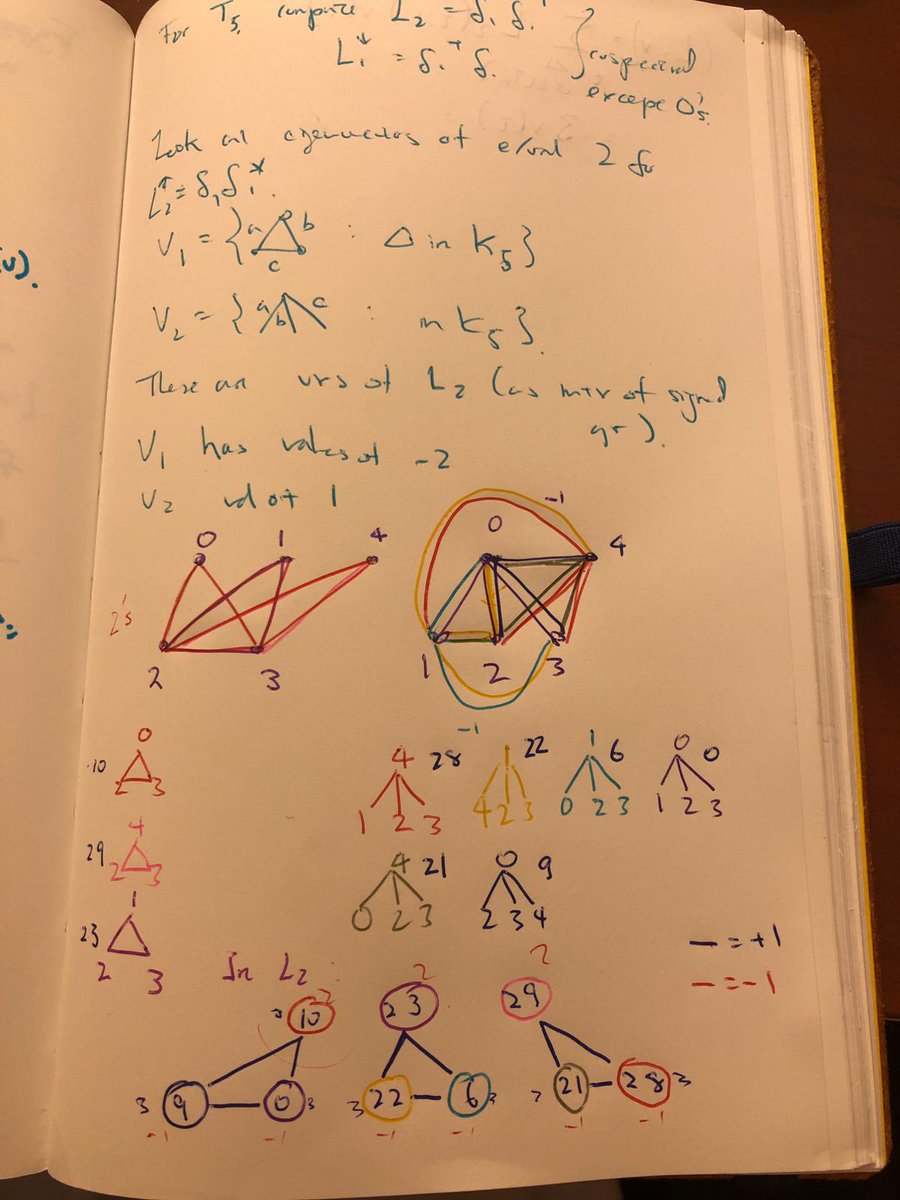 For T5, compute L2 = δ1 δ1
L1↓ = δ1* δ1
except 0's.
Look at eigenvectors of e/val 2 for
L2↑ = δ1 δ1*.
V1 = { a b c : △ in K5 }
V2 = { a b c : in K5 }.
These are vrs of L2 (as mtx of signed gr).
V1 has values of -2
V2 val of 1
0 1 4
2's
2 3
-1
0 4
1 2 3
-1
0
10
2 3
4
29
2 3
1
23
2 3
4 28
1 2 3
1 22
4 2 3
1 6
0 2 3
0 0
1 2 3
4 21
0 2 3
0 9
2 3 4
— = +1
— = -1
In L2
2 2 2
10 23 29
3 9 0 3
3 22 6 3
21 28 3
-1 -1 -1 -1 -1 -1